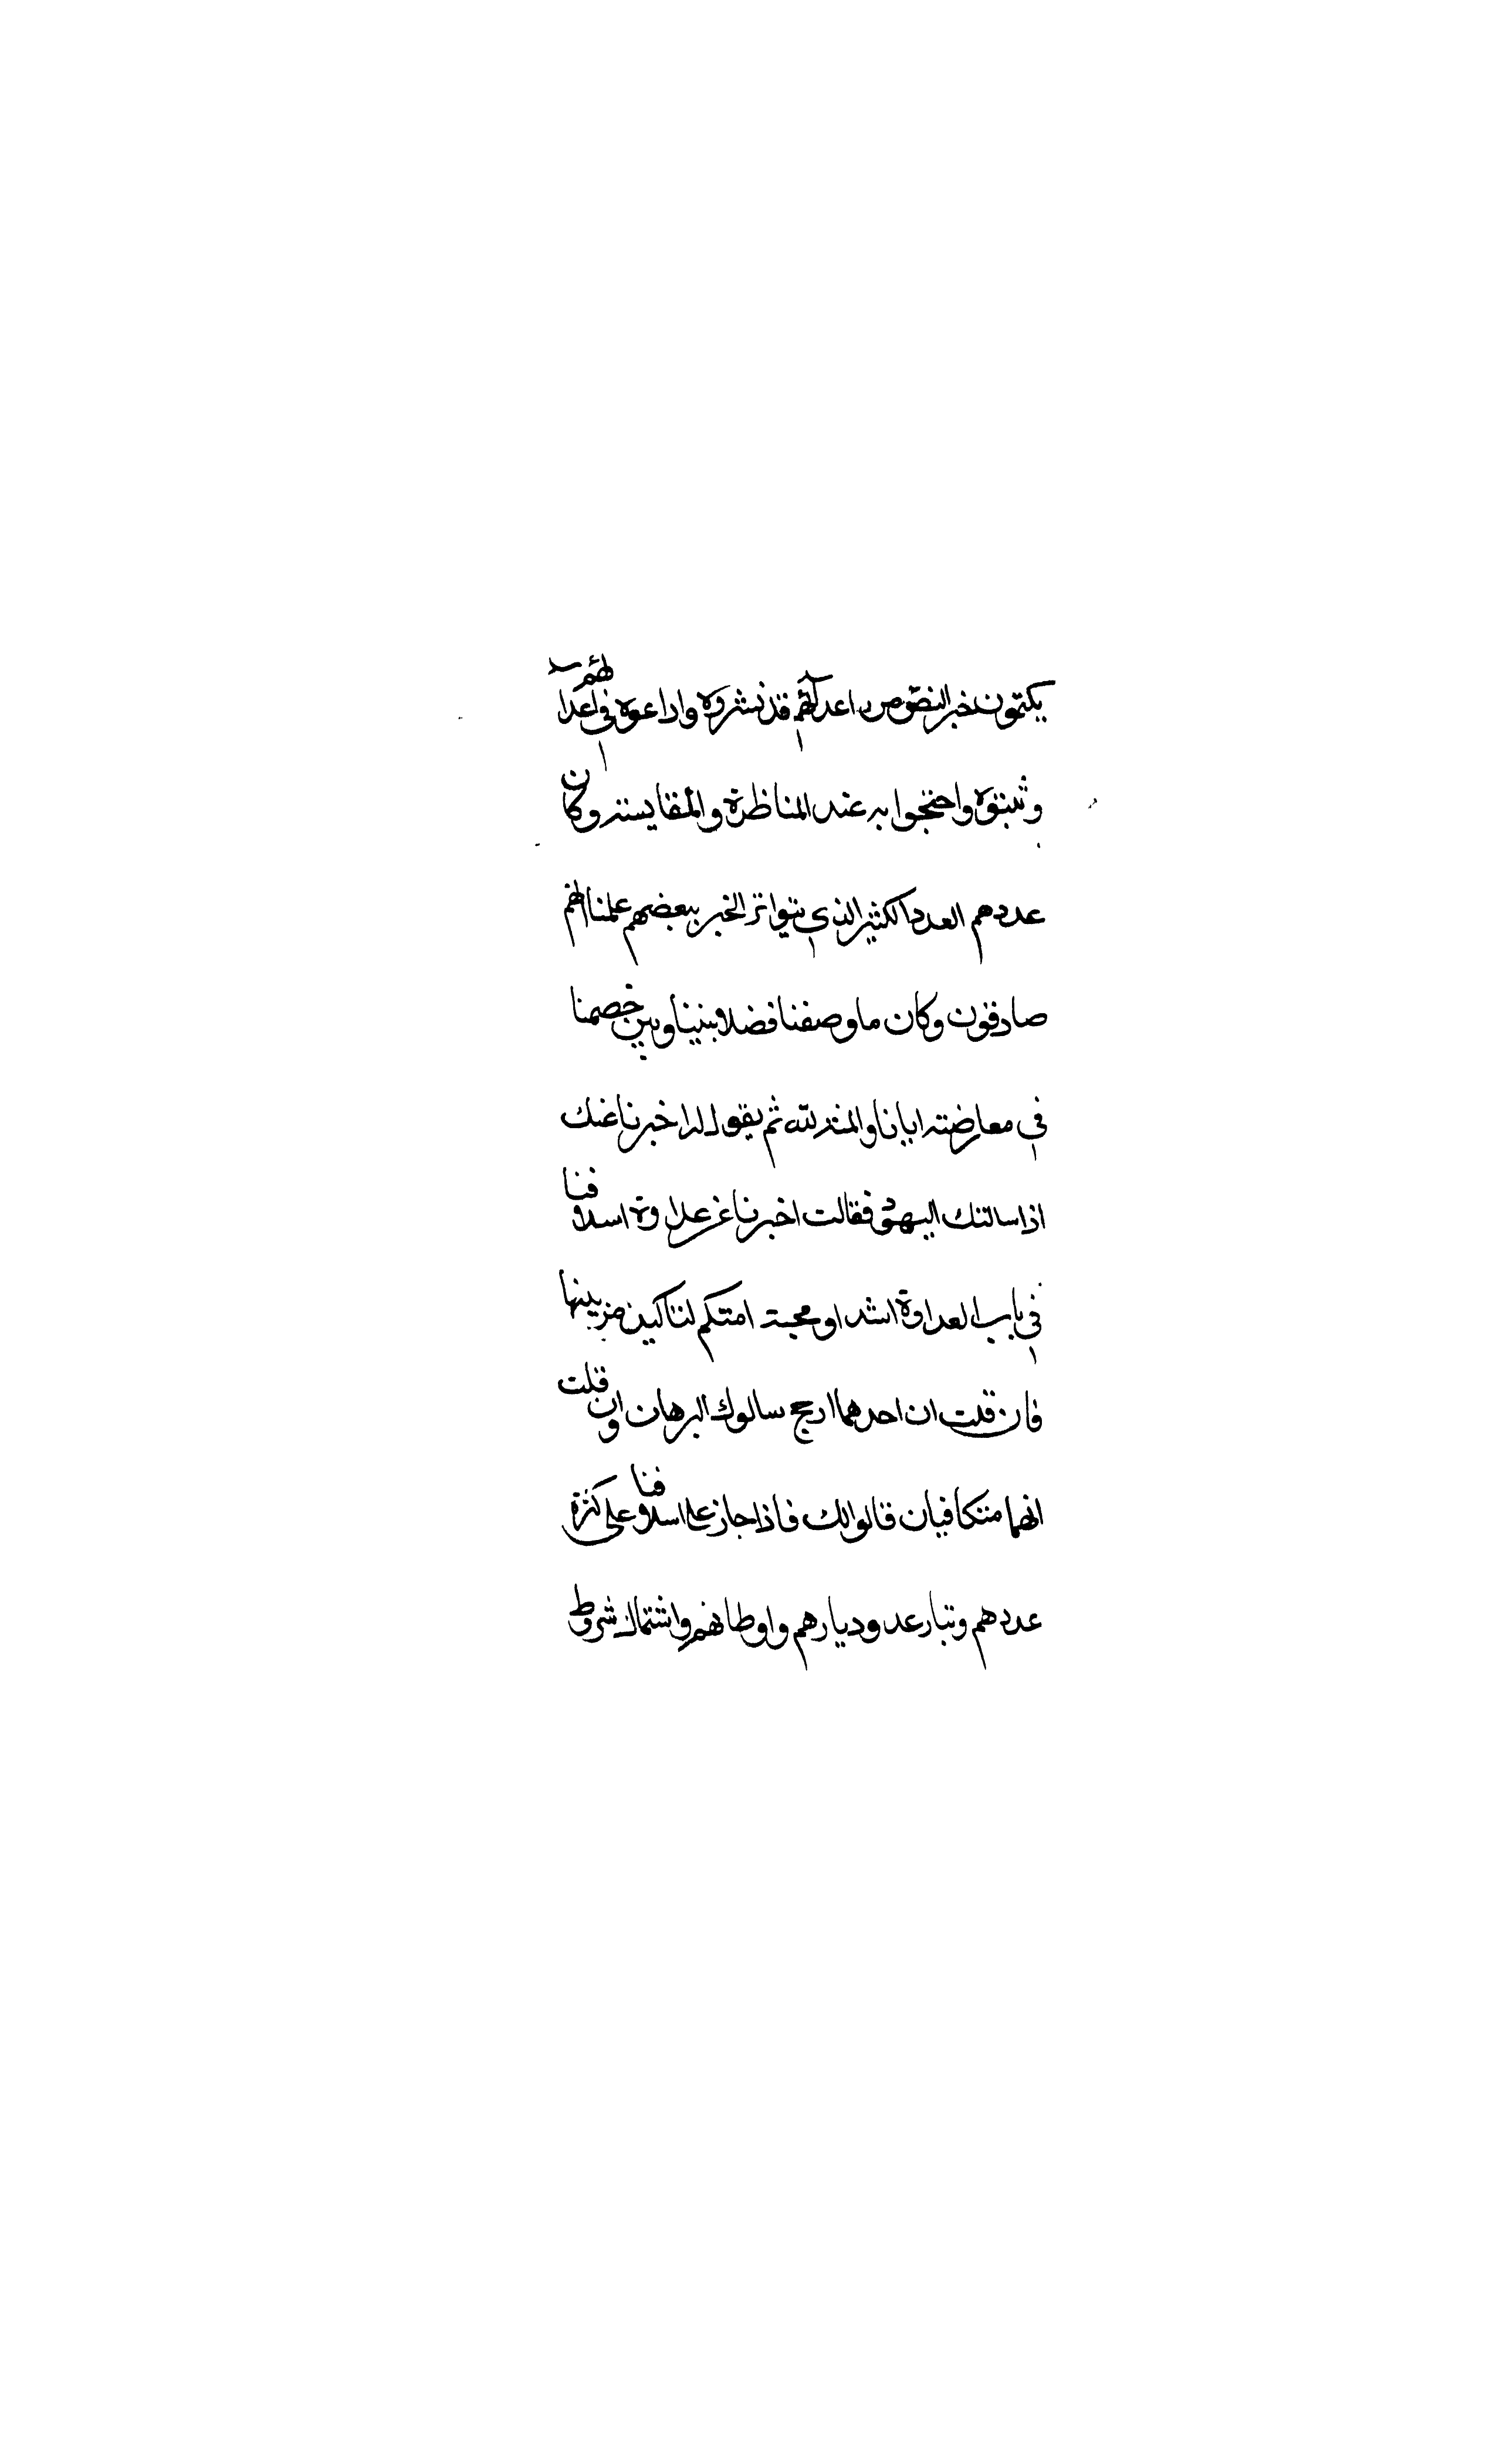 يكتمون خبر النصوص اعدائهم قد نشروه واذاعوه في اعدائهم
وثبتوه واحتجوا به عند المناظرة والمقايسة وكان
عددهم العدد الكثير الذي يتواتر الخبر ببعضهم علمنا انهم
صادقون وكان ما وصفنا فضلا بيننا وبين خصمنا
في معارضته ايانا والمنة لله ثم يقول له اخبرنا عنك
اذا سالتك اليهود فقالت اخبرنا عن عداوة اسلافنا
في باب العداوة اشد او محبة امتكم لتاكيد من بينها
فان قلت ان احدهما ارجح سالوك البرهان وان قلت
انهما متكافيان قالوا لك فاذا جاز على اسلافنا على كثرة
عددهم وتباعد ديارهم واوطانهم واشتمال شروط